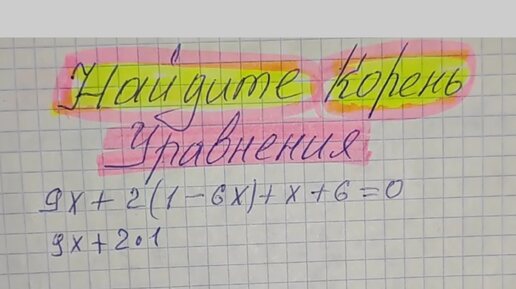 Найдите корень
Уравнения
9x + 2(1 - 6x) + x + 6 = 0
9x + 2•1